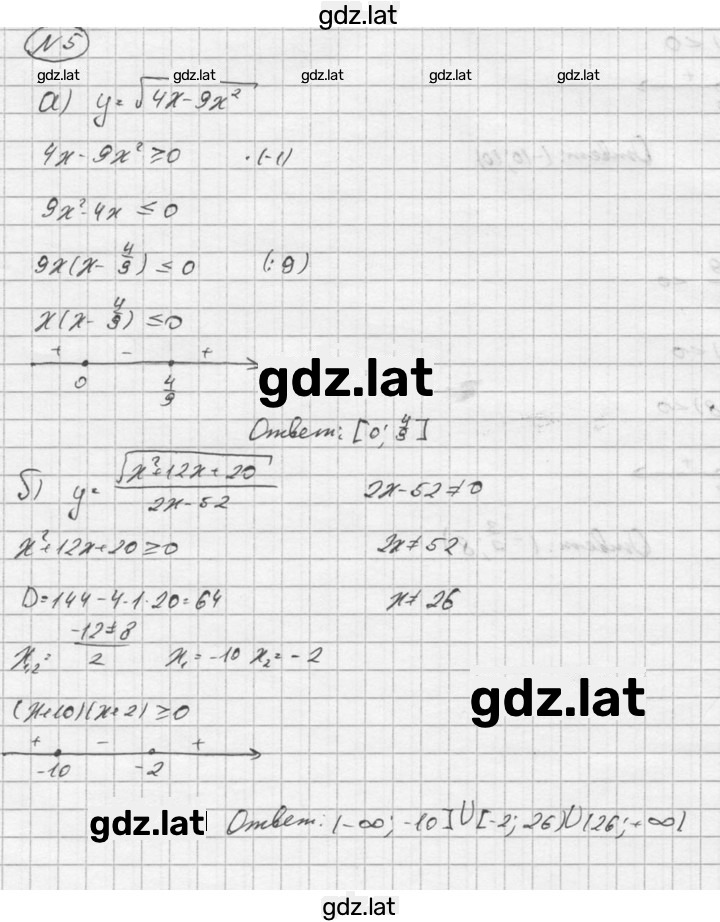 gdz.lat
N5
gdz.lat gdz.lat gdz.lat gdz.lat gdz.lat
a) y = √(4x - 9x²)
4x - 9x² ≥ 0 ·(-1)
9x² - 4x ≤ 0
9x(x - 4/9) ≤ 0 (:9)
x(x - 4/9) ≤ 0
+ - +
0 4/9
gdz.lat
Ответ: [0; 4/9]
б) y = √(x² + 12x + 20) / (2x - 52) 2x - 52 ≠ 0
x² + 12x + 20 ≥ 0 2x ≠ 52
D = 144 - 4·1·20 = 64 x ≠ 26
x₁,₂ = (-12 ± 8) / 2 x₁ = -10 x₂ = -2
gdz.lat
(x+10)(x+2) ≥ 0
+ - +
-10 -2
gdz.lat
Ответ: (-∞; -10] ∪ [-2; 26) ∪ (26; +∞)
gdz.lat